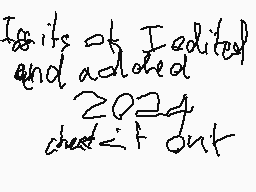 of I edited
and added
2024
check it out